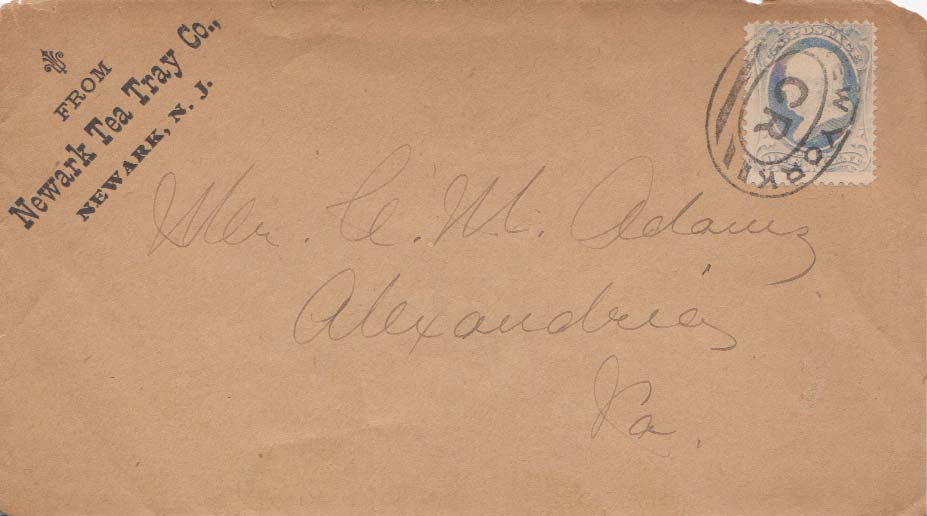 FROM
Newark Tea Tray Co.,
NEWARK, N. J.
W YORK
C R
Mr. C. M. Adams
Alexandria
Va.